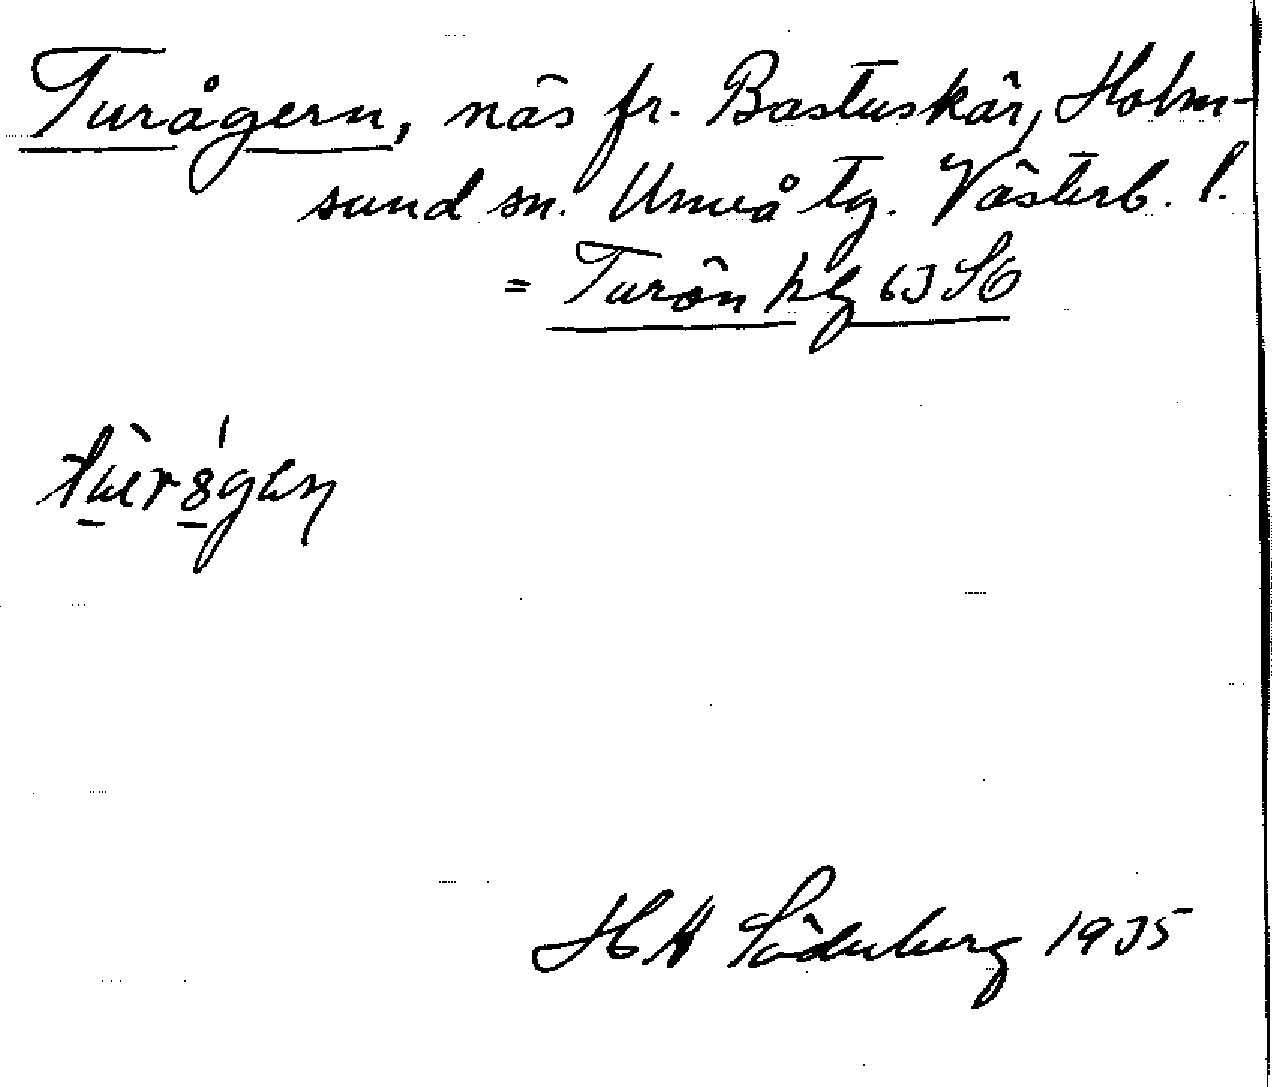 Turågern, näs fr. Bastuskär, Holm-
sund sn. Umeå tg. Västerb. l.
= Turön kg 63 SO
H A Söderberg 1935